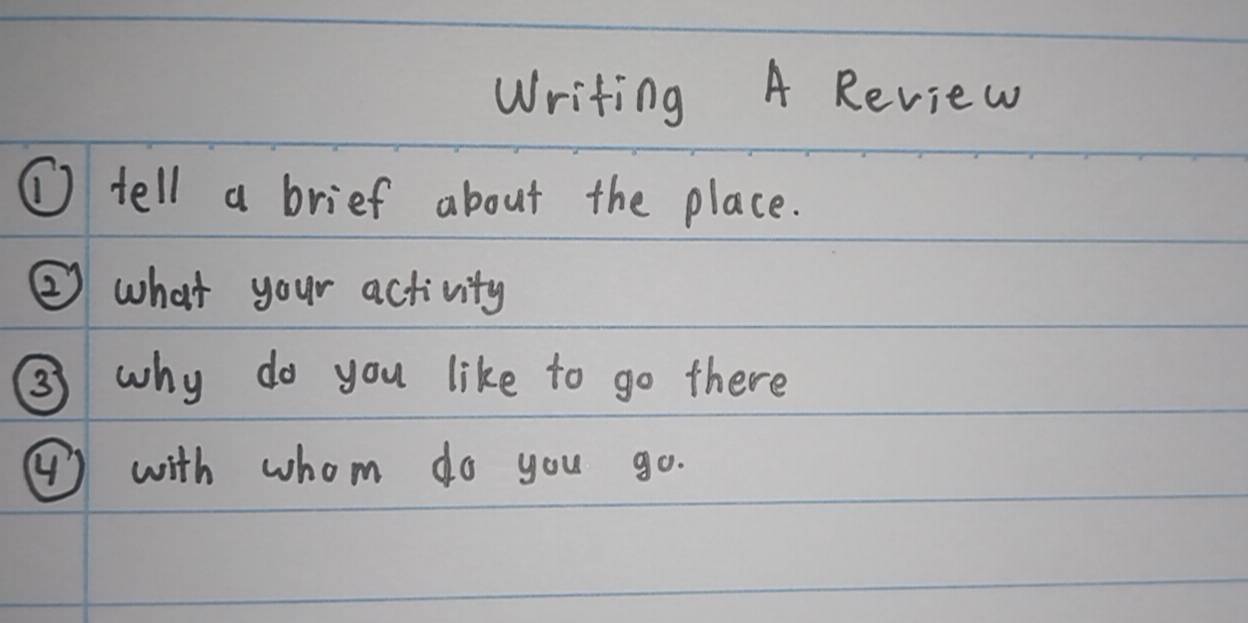 Writing A Review
① tell a brief about the place.
② what your activity
③ why do you like to go there
④ with whom do you go.